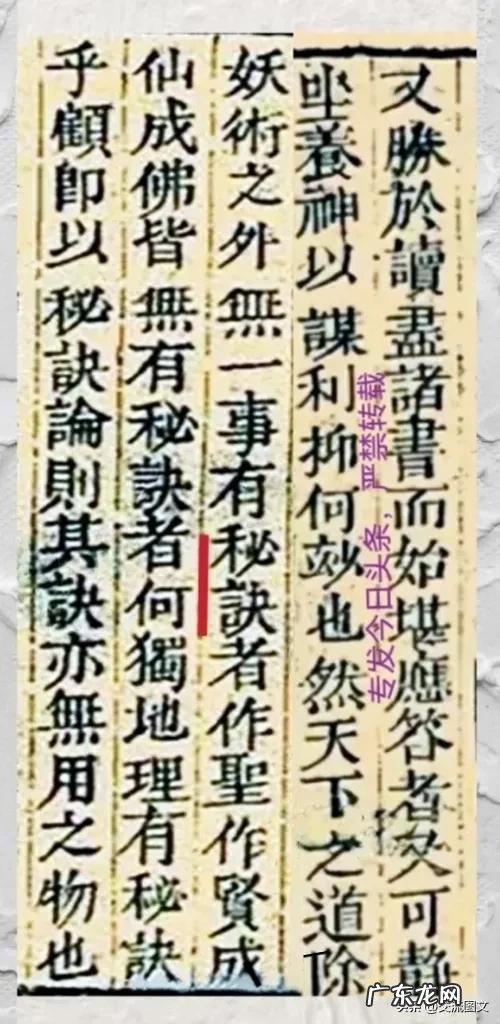 又勝於讀盡諸書而始堪應答者又可靜
坐養神以謀利抑何玅也然天下之道除
妖術之外無一事有秘訣者作聖作賢成
仙成佛皆無有秘訣者何獨地理有秘訣
乎顧即以秘訣論則其訣亦無用之物也
专发今日头条，严禁转载
广东龙网
头条@交流图文